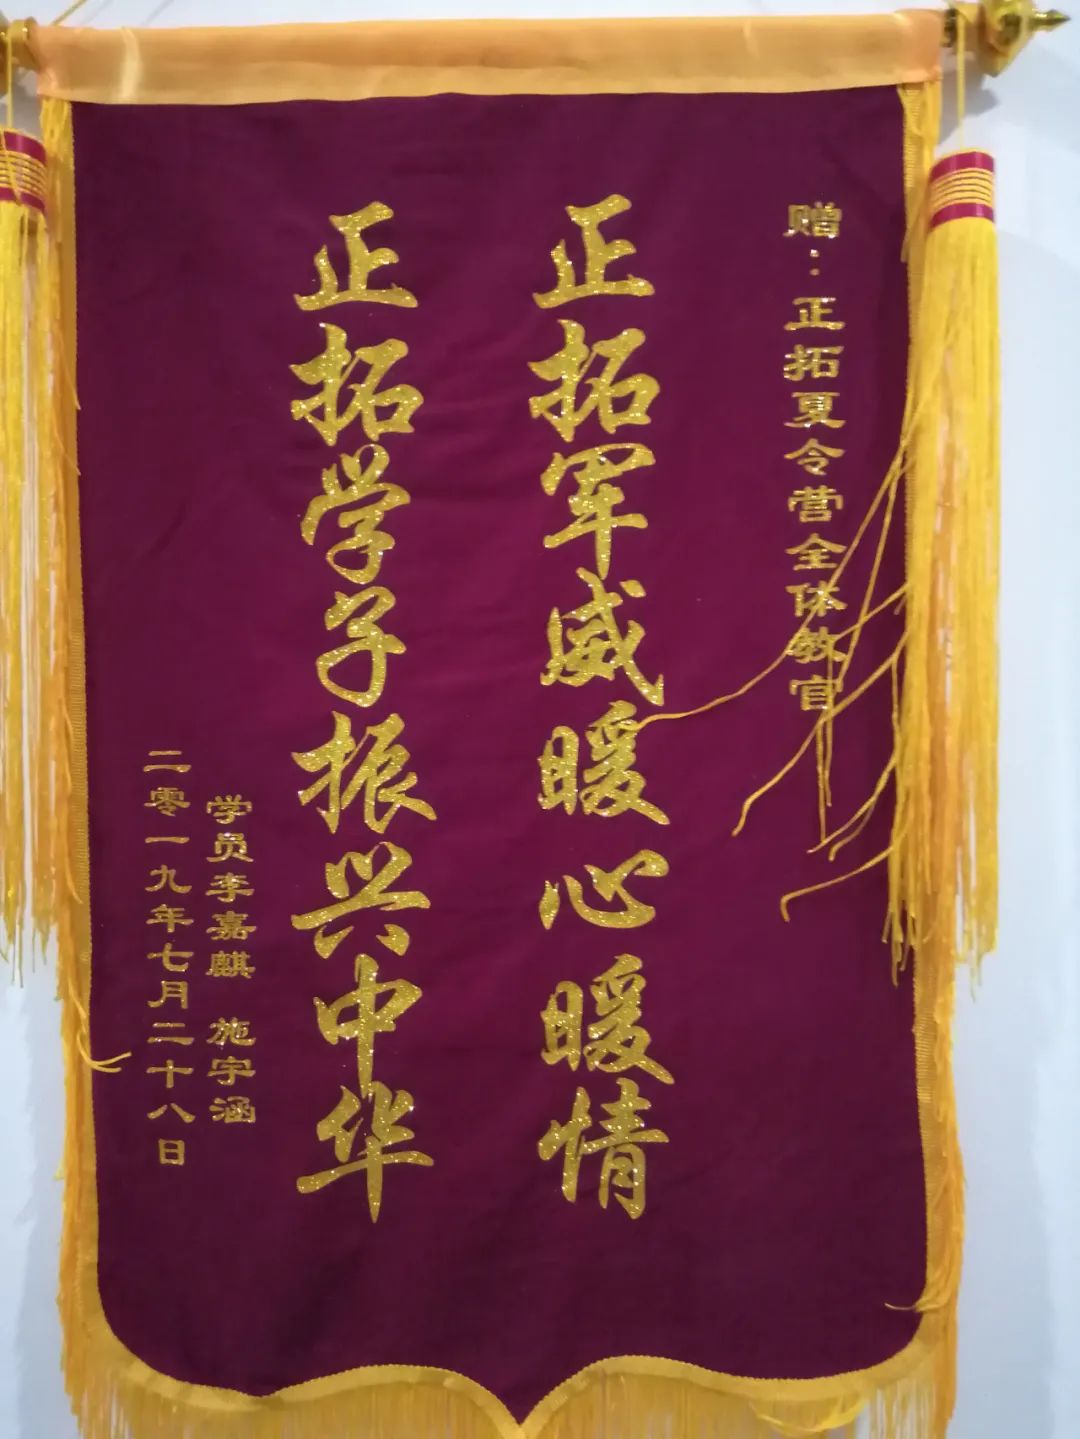 赠：正拓夏令营全体教官
正拓军威暖心暖情
正拓学子振兴中华
学员李嘉麒 施宇涵
二零一九年七月二十八日